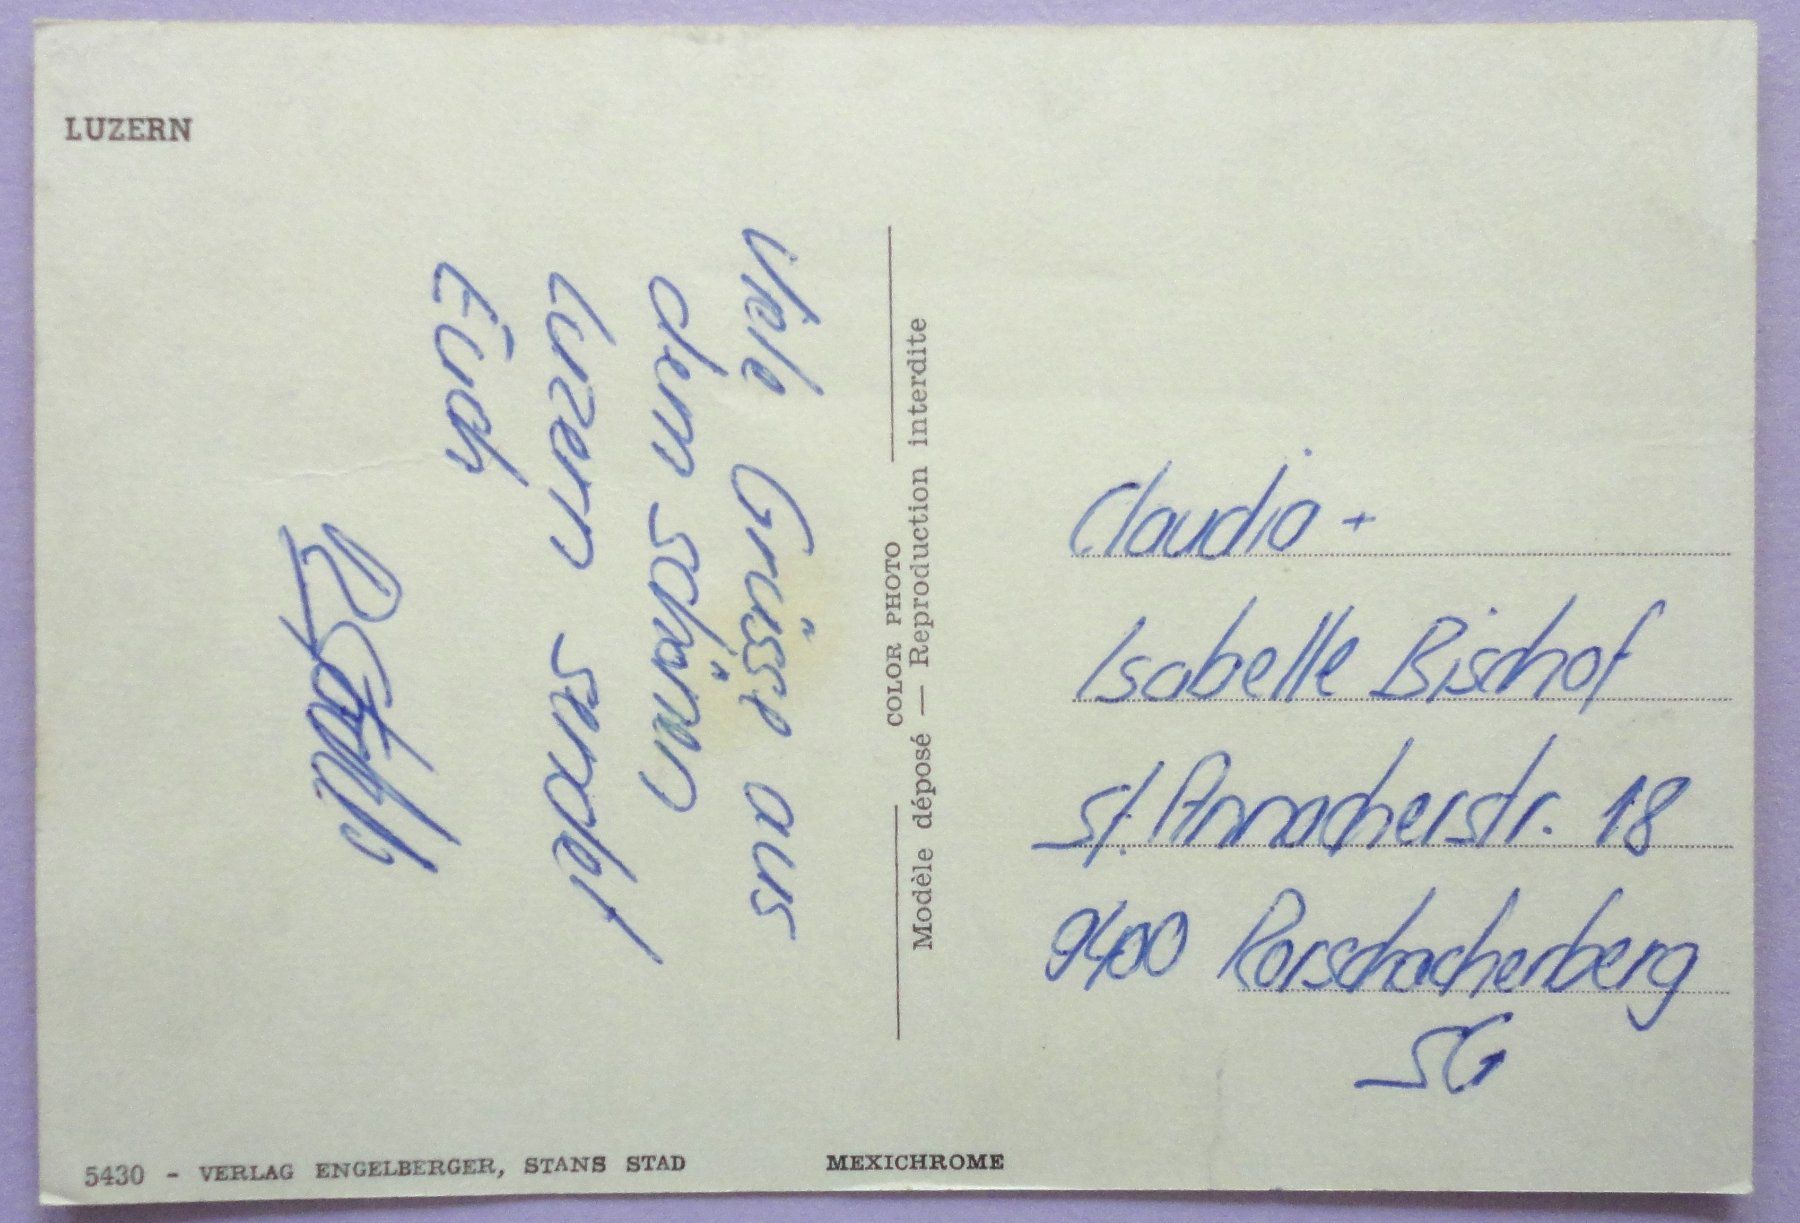 LUZERN
Viele Grüsse aus
dem schönen
Luzern sendet
Euch
COLOR PHOTO
Modèle déposé — Reproduction interdite
Claudio +
Isabelle Bischof
St. Annacherstr. 18
9400 Rorschacherberg
SG
5430 - VERLAG ENGELBERGER, STANS STAD
MEXICHROME